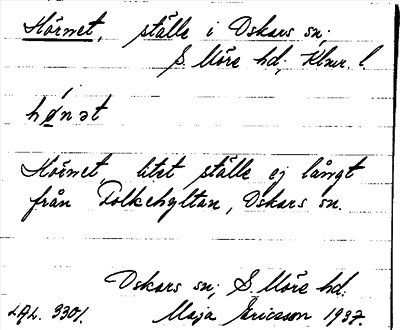 Hörnet, ställe i Oskars sn;
S. Möre hd; Klmr. l.
hǿnət
Hörnet, litet ställe ej långt
från Folkehyltan, Oskars sn.
Oskars sn; S. Möre hd;
LAL. 3301. Maja Ericsson 1937.